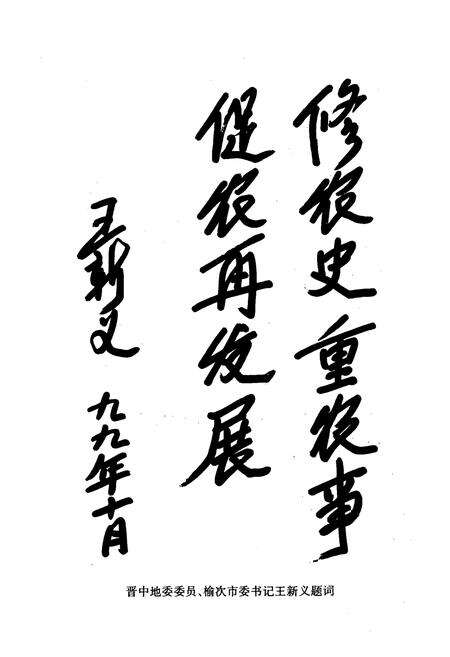 修农史重农事
促农再发展
王新义
九九年十月
晋中地委委员、榆次市委书记王新义题词